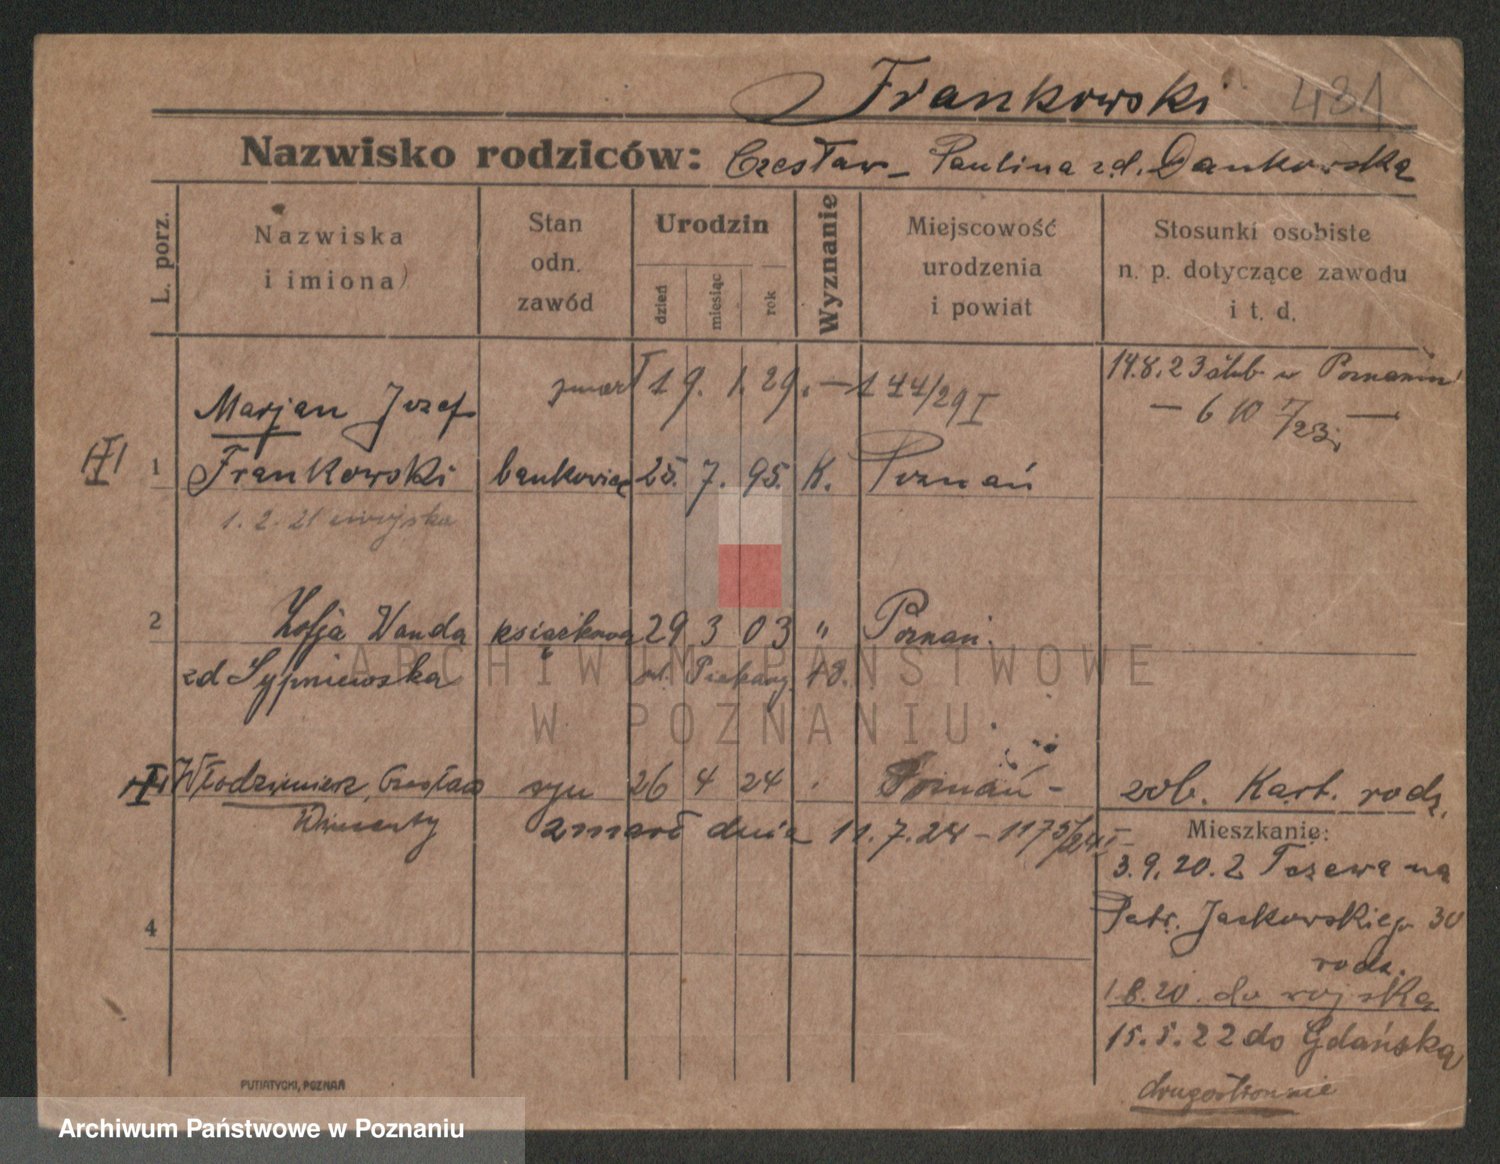 Frankowski 431
Nazwisko rodziców: Czesław - Paulina zd. Dankowska
L. porz.
Nazwiska
i imiona
Stan
odn.
zawód
Urodzin
dzień
miesiąc
rok
Wyznanie
Miejscowość
urodzenia
i powiat
Stosunki osobiste
n. p. dotyczące zawodu
i t. d.
zmarł 19. 1. 29. - 144/29 I
14.8.23 ślub w Poznaniu
- 610/23
Marjan Jozef
1 Frankowski bankowiec 25. 7. 95. K. Poznań
1. 2. 21 z wojska
2 Zofja Wanda książkowa 29 3 03 " Poznań
zd Sypniewska
Włodzimierz, Czesław syn 26 4 24 Poznań -
Wincenty zmarł dnia 11.7.24 - 1175/24 I
zob. Kart. rodz.
Mieszkanie:
3.9.20. z Tczewa na
Patr. Jackowskiego 30
rodz.
1.8.20. do wojska
15.5.22 do Gdańska
drugostronnie
4
PUTIATYCKI, POZNAŃ
ARCHIWUM PAŃSTWOWE
W POZNANIU
Archiwum Państwowe w Poznaniu